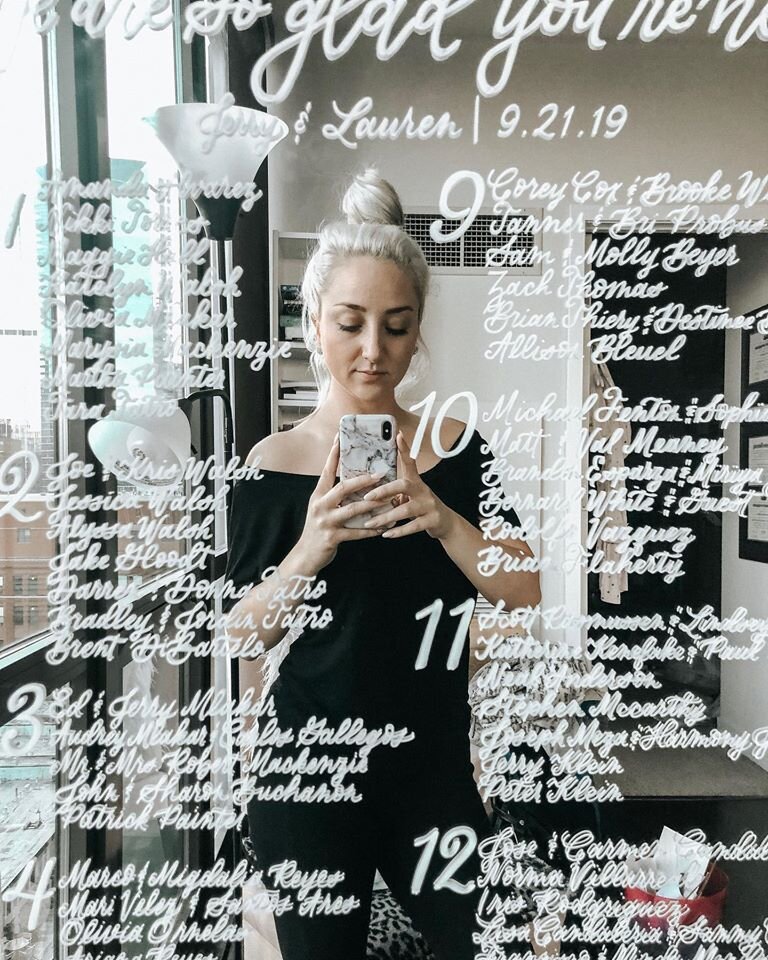 are so glad you're
Jerry & Lauren | 9.21.19
1 Amanda Alvarez
Nikki
Maggie Hall
Katelyn Walsh
Olivia
Mackenzie
Painter
Tara Tatro
2 Joe & Kris Walsh
Jessica Walsh
Alyssa Walsh
Jake Gloodt
Darren & Donna Tatro
Bradley & Jordin Tatro
Brent DiBartolo
3 Ed & Jerry Mlakar
Audrey Mlakar & Carlos Gallegos
Mr. & Mrs. Robert Mackenzie
John & Sharon Buchanan
Patrick Painter
4 Marco & Migdalia Reyes
Mari Velez & Santos Ares
Olivia Ornelas
Ariana Reyes
9 Corey Cox & Brooke
Tanner & Bri Probus
Sam & Molly Beyer
Zach Thomas
Brian Thiery & Destinee
Allison Bleuel
10 Michael Fenton & Sophia
Matt & Val Meaney
Brandon Esparza & Miriya
Bernard White & Guest
Rodolfo Vazquez
Brian Flaherty
11 Scott Rasmussen & Lindsey
Katherine Kenefake & Paul
Noah Anderson
Stephen McCarthy
Joseph Meza & Harmony
Jerry Klein
Peter Klein
12 Jose & Carmen
Norma Villarreal
Iris Rodgriguez
Lisa Candaleria & Sammy
Francisco & Mindy